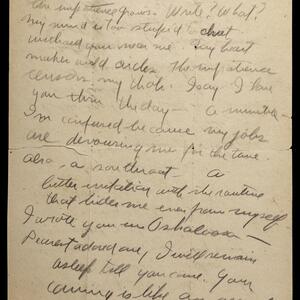 the impatience grows. Write? What?
My mind is too stupid to
you near me. My heart
and circles. The impatience
my I say I love
you thru the day — a minute —
I'm confused because my jobs
are devouring me for the time
also, a — a
bitter irritation with the routine
that hides me even from myself
I wrote you in Oskaloosa —
Dearest adored one, I will remain
asleep till you come. Your
coming is like an